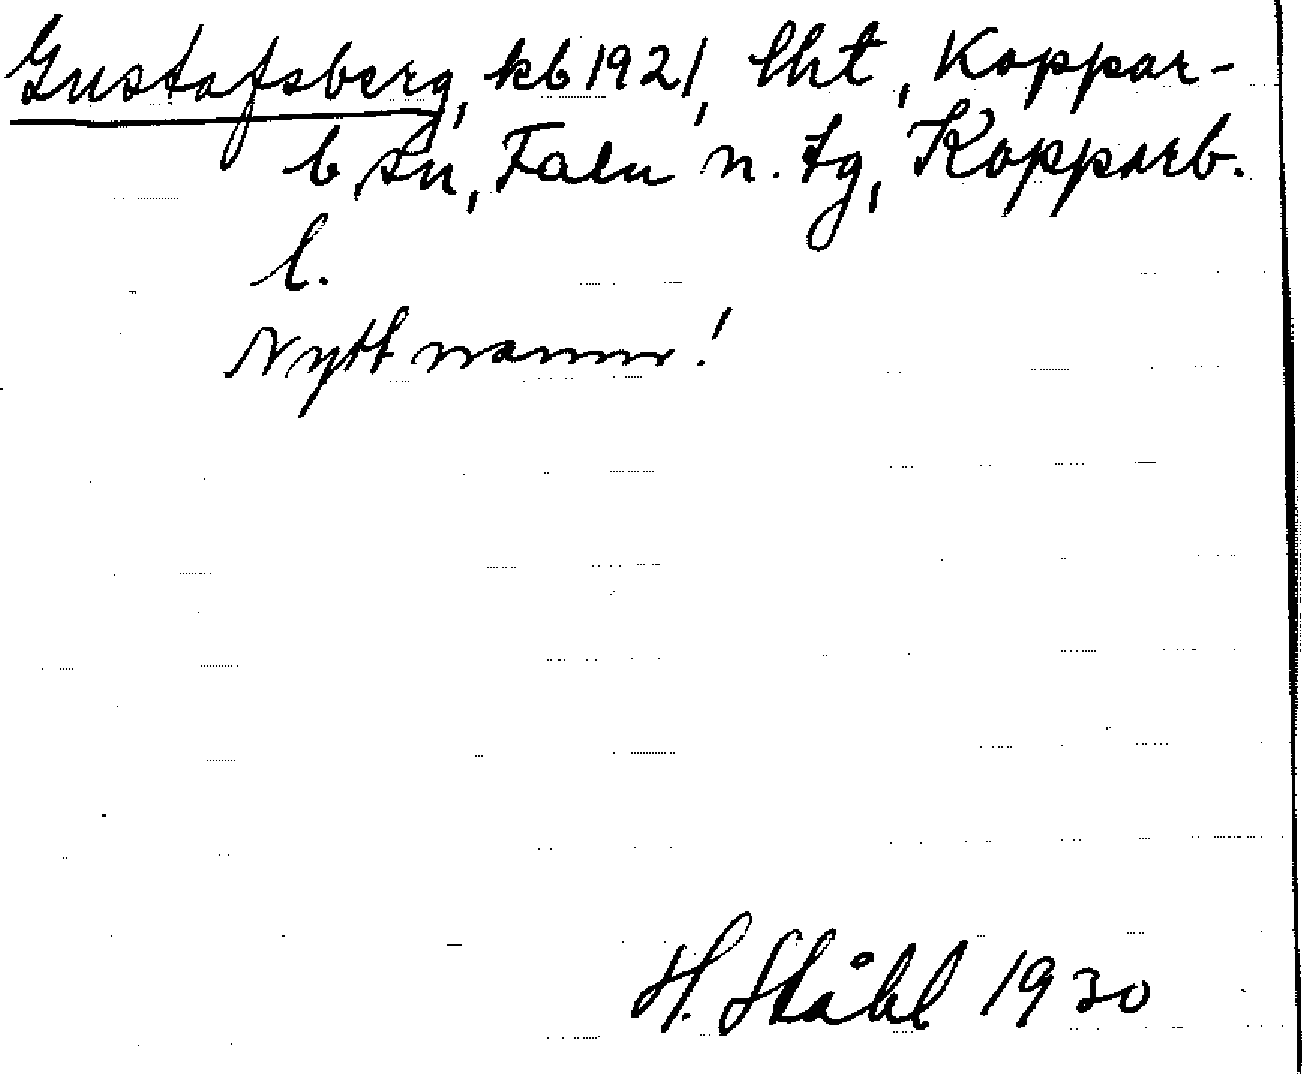 Gustafsberg, kb 1921, lht, Koppar-
b sn, Falu n. tg, Kopparb.
l.
Nytt namn!
H. Ståhl 1930